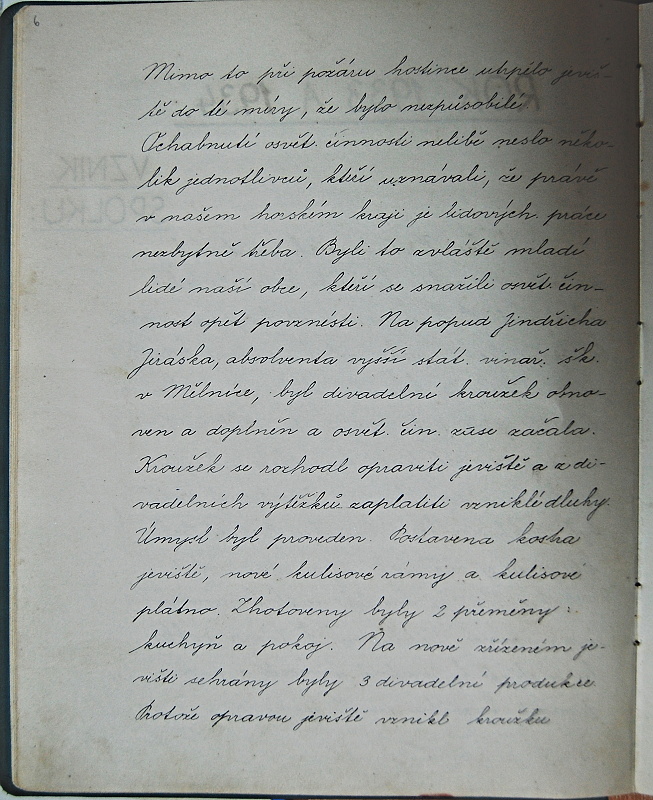 6
Mimo to při požáru hostince utrpělo jeviš-
tě do té míry, že bylo nezpůsobilé.
Ochabnutí osvět. činnosti nelibě neslo něko-
lik jednotlivců, kteří uznávali, že právě
v našem horském kraji je lidových. práce
nezbytně třeba. Byli to zvláště mladí
lidé naší obce, kteří se snažili osvět. čin-
nost opět povznésti. Na popud Jindřicha
Jiráska, absolventa vyšší stát. vinař. šk.
v Mělníce, byl divadelní kroužek obno-
ven a doplněn a osvět. čin. zase začala.
Kroužek se rozhodl opraviti jeviště a z di-
vadelních výtěžků zaplatiti vzniklé dluhy.
Úmysl byl proveden. Postavena kostra
jeviště, nové kulisové rámy a kulisové
plátno. Zhotoveny byly 2 přeměny:
kuchyň a pokoj. Na nově zřízeném je-
višti sehrány byly 3 divadelní produkce.
Protože opravou jeviště vznikl kroužku
VZNIK
SPOLKU: